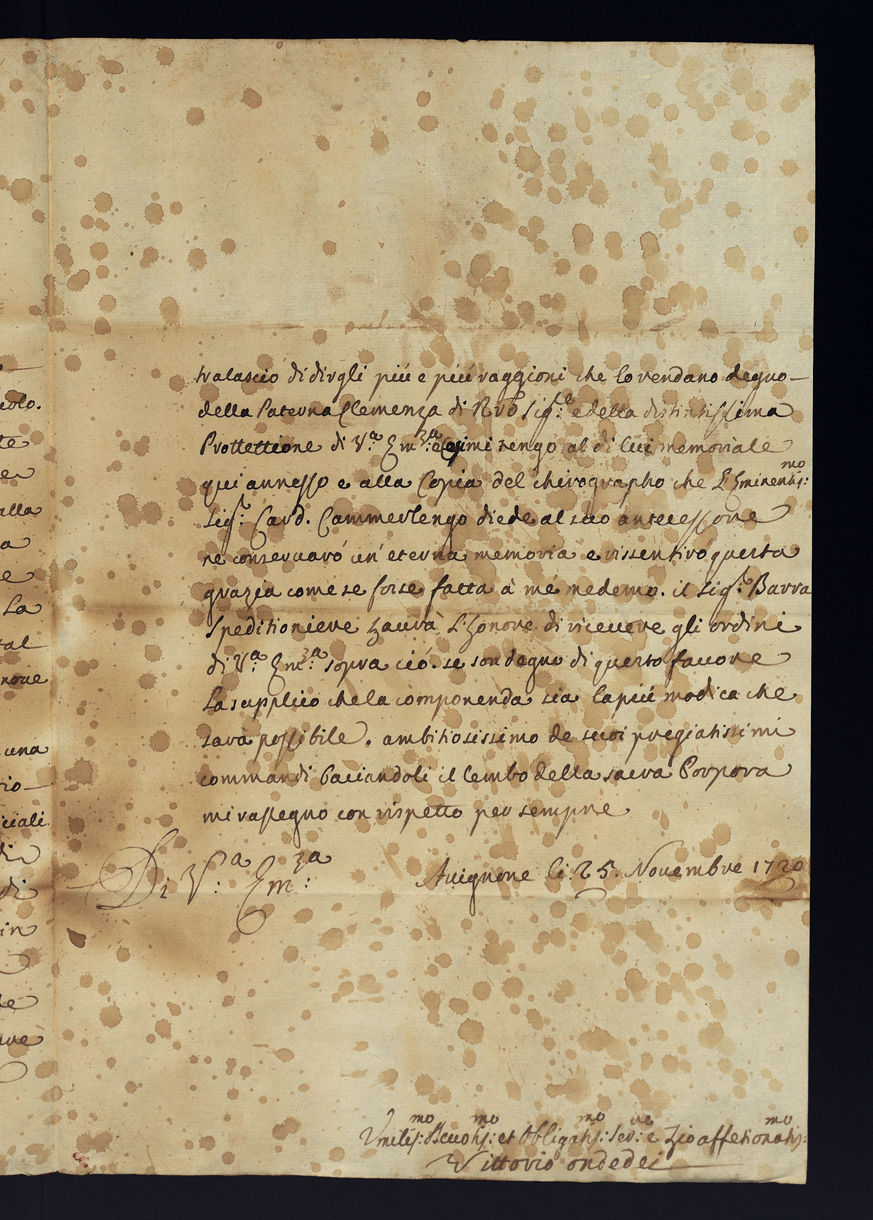 tralascio di dirgli piú e piú raggioni che lo rendano degno
della Paterna Clemenza di Nro Sigre: e della distintissima
Prottettione di V.a Em.za mi tengo al di lui memoriale
qui annesso e alla Copia del chirographo che L'Eminentis:mo
Sig.r Card. Cammerlengo diede al suo antecessore
ne conservaró un'eterna memoria e rissentiró questa
grazia come se fosse fatta à mé medemo. il Sig.r Barra
Speditioniere haverà L'honore di ricevere gli ordini
di V.a Em.za sopra ció. se son degno di questo favore
La supplico che la componenda sia la piú modica che
sara possibile. ambitiosissimo de suoi pregiatissimi
commandi baciandoli il lembo della sacra Porpora
mi rassegno con rispetto per sempre
Di V:a Em:za
Avignone li: 25. Novembre 1720
Umilis:mo Devotis:mo et Obligatis:mo Ser:re e Zio affetionatis:mo
Vittorio ondedei
colo.
te
alla
a
e
La
tal
una
rio
ciali
di
in